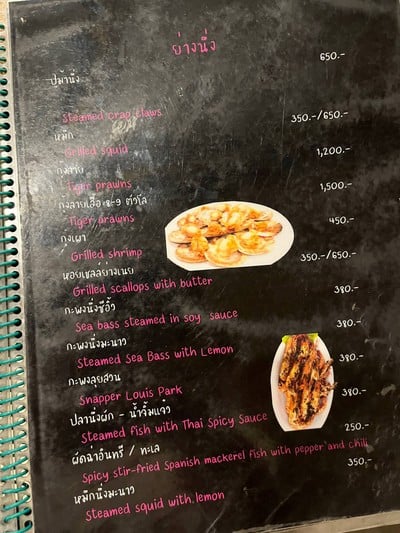 ย่างนึ่ง
ปูม้านึ่ง 650.-
Steamed crap claws
หมึก 350.-/650.-
Grilled squid
กุ้งลาย 1,200.-
Tiger prawns
กุ้งลายเสือ 8-9 ตัวโล 1,500.-
Tiger arawns
กุ้งเผา 450.-
Grilled shrimp
หอยเชลล์ย่างเนย 350.-/650.-
Grilled scallops with butter
กะพงนึ่งซีอิ๊ว 380.-
Sea bass steamed in soy sauce
กะพงนึ่งมะนาว 380.-
Steamed Sea Bass with Lemon
กะพงลุยสวน 380.-
Snapper Louis Park
ปลานึ่งผัก - น้ำจิ้มแจ่ว 380.-
Steamed fish with Thai Spicy Sauce
ผัดฉ่าอินทรี / ทะเล 250.-
Spicy stir-fried Spanish mackerel fish with pepper and chili
หมึกนึ่งมะนาว 350.-
Steamed squid with lemon